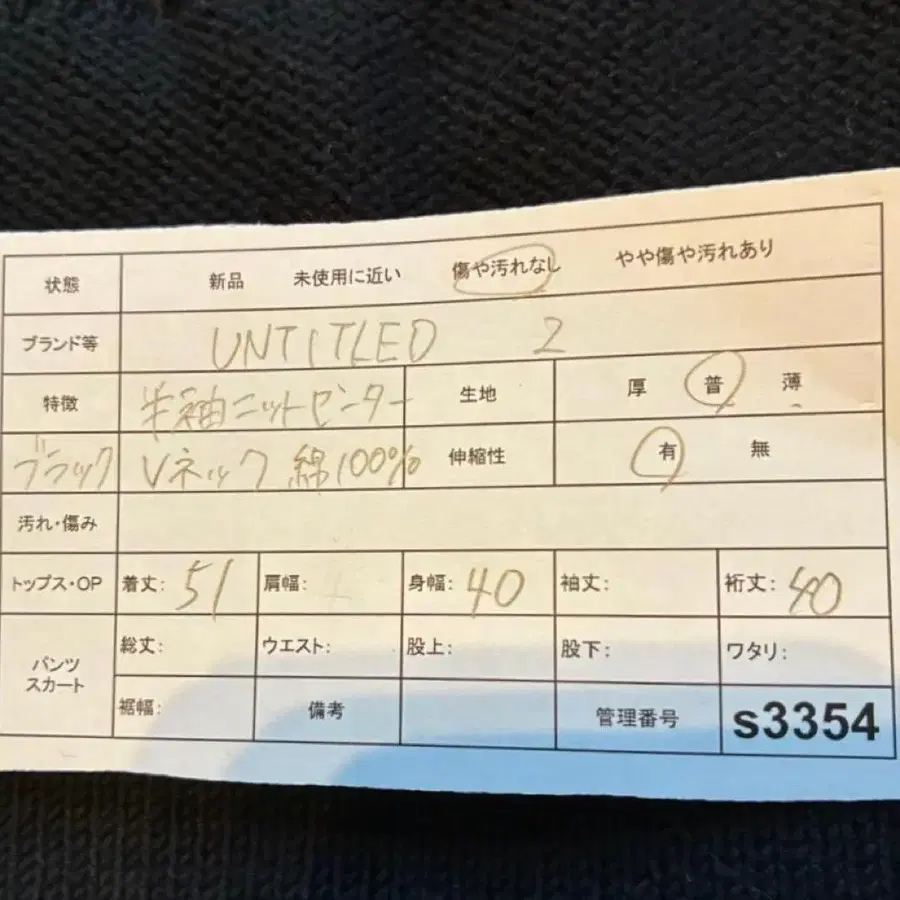 状態 新品 未使用に近い 傷や汚れなし やや傷や汚れあり
ブランド等 UNTITLED 2
特徴 半袖ニットセーター 生地 厚 普 薄
ブラック Vネック 綿100% 伸縮性 有 無
汚れ・傷み
トップス・OP 着丈: 51 肩幅: 身幅: 40 袖丈: 裄丈: 40
パンツ スカート 総丈: ウエスト: 股上: 股下: ワタリ:
裾幅: 備考 管理番号 s3354